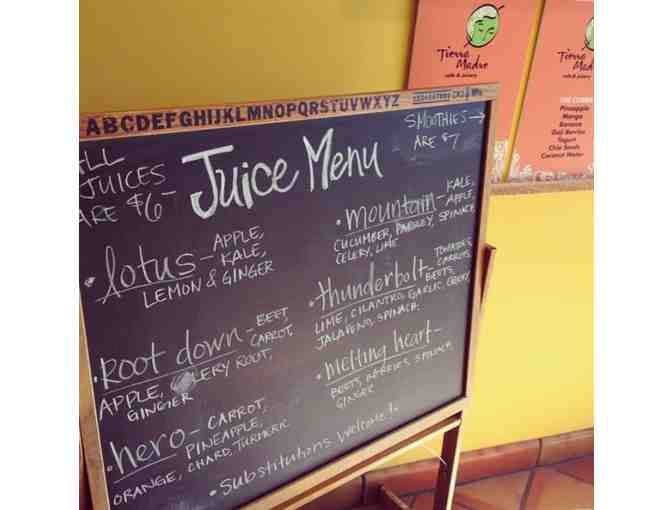 Tierra
Madre
cafe & juicery
Tierra
Madre
cafe & juicery
Pineapple
Mango
Banana
Goji Berries
Yogurt
Chia Seeds
Coconut Water
ABCDEFGHIJKLMNOPQRSTUVWXYZ
ALL
JUICES
ARE $6-
Juice Menu
SMOOTHIES →
ARE $7
• lotus - APPLE,
KALE,
LEMON & GINGER
• ROOT down - BEET,
CARROT,
APPLE, CELERY ROOT,
GINGER
• hero - CARROT,
PINEAPPLE,
ORANGE, CHARD, TURMERIC
• mountain - KALE,
APPLE,
CUCUMBER, PARSLEY, SPINACH
CELERY, LIME
• thunderbolt - TOMATOES,
CARROTS,
BEETS,
LIME, CILANTRO, GARLIC, CELERY,
JALAPENO, SPINACH
• melting heart -
BEETS, BERRIES, SPINACH
GINGER
• Substitutions Welcome!